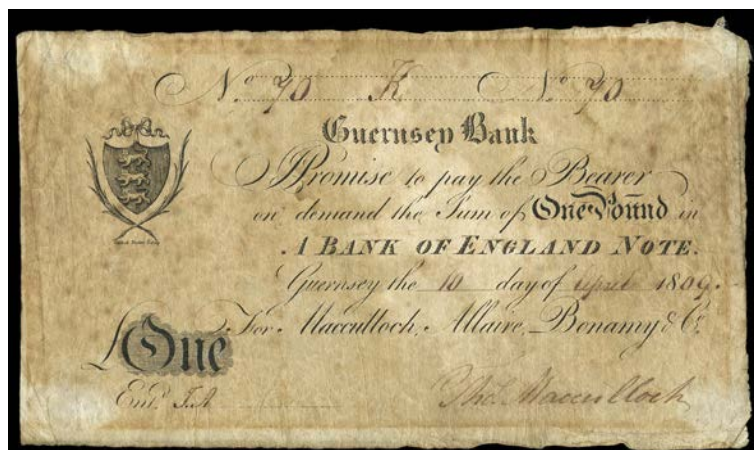 No. 90 K No. 90
Guernsey Bank
I Promise to pay the Bearer
on demand the Sum of One Pound in
A BANK OF ENGLAND NOTE.
Guernsey the 10 day of April 1809.
For Macculloch, Allaire, Bonamy & Co.
£One
Entd. J.A
Thos. Macculloch